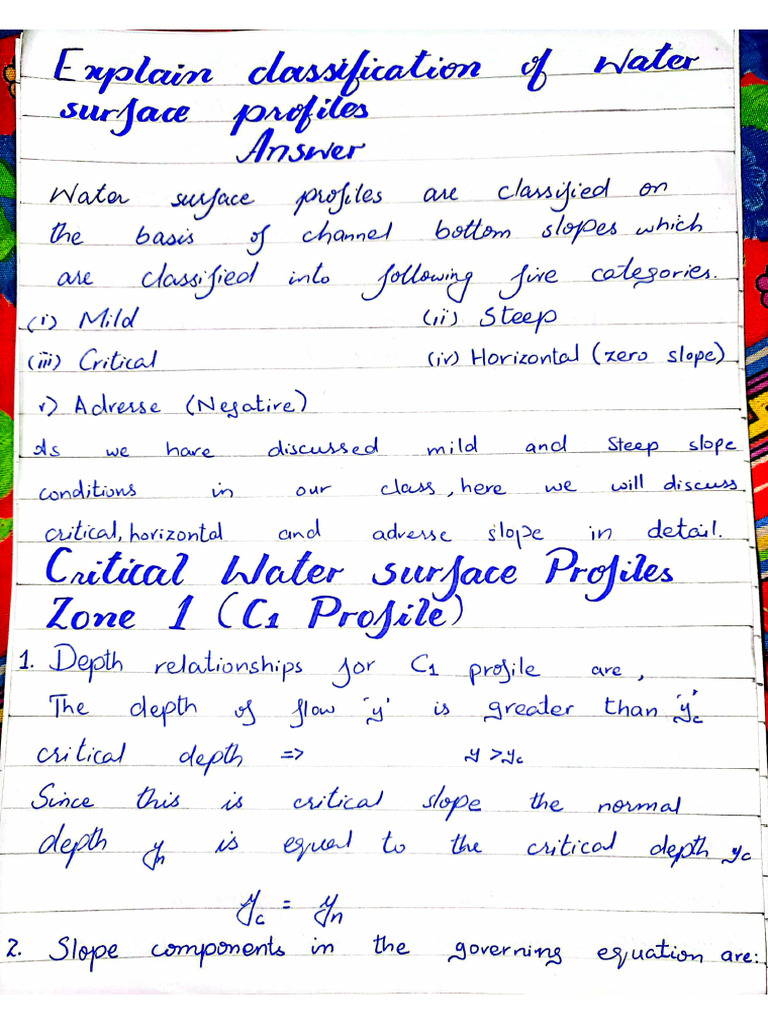 Explain classification of Water
surface profiles
Answer
Water surface profiles are classified on
the basis of channel bottom slopes which
are classified into following five categories.
(i) Mild (ii) Steep
(iii) Critical (iv) Horizontal (zero slope)
v) Adverse (Negative)
As we have discussed mild and Steep slope
conditions in our class, here we will discuss
critical, horizontal and adverse slope in detail.
Critical Water surface Profiles
Zone 1 (C1 Profile)
1. Depth relationships for C1 profile are,
The depth of flow 'y' is greater than 'yc'
critical depth => y > yc
Since this is critical slope the normal
depth yn is equal to the critical depth yc
yc = yn
2. Slope components in the governing equation are: